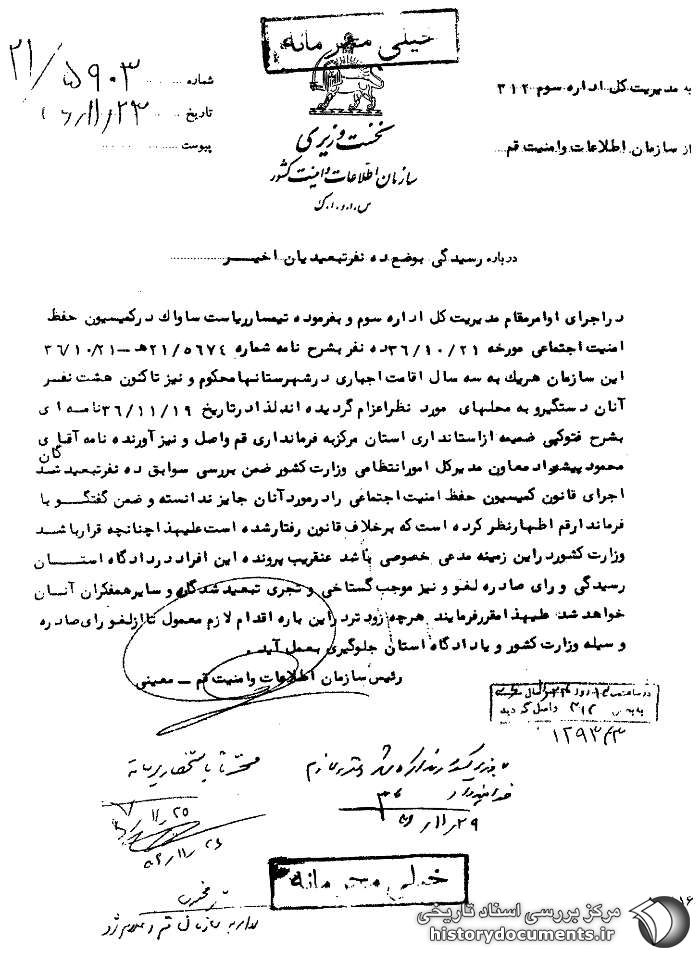 خیلی محرمانه
به مدیریت کل اداره سوم ۳۱۲
شماره ۲۱/۵۹۰۳
از سازمان اطلاعات وامنیت قم
تاریخ ۱۱/۲۳
پیوست
نخست وزیری
سازمان اطلاعات و امنیت کشور
س.ا.و.ا.ک
درباره رسیدگی بوضع ده نفرتبعیدیان اخیر
دراجرای اوامرمقام مدیریت کل اداره سوم و بفرموده تیمسارریاست ساواك درکمیسیون حفظ
امنیت اجتماعی مورخه ۳۶/۱۰/۲۱ ده نفر بشرح نامه شماره ۲۱/۵۶۷۴هـ – ۳۶/۱۰/۲۱
این سازمان هریك به سه سال اقامت اجباری درشهرستانهامحکوم و نیز تاکنون هشت نفر
آنان دستگیرو به محلهای مورد نظراعزام گردیده اندلذادرتاریخ ۳۶/۱۱/۱۹ نامه ای
بشرح فتوکپی ضمیمه ازاستانداری استان مرکزبه فرمانداری قم واصل و نیز آورنده نامه آقای
محمود پیشنهاد معاون مدیرکل امورانتظامی وزارت کشور ضمن بررسی سوابق ده نفرتبعید شدگان
اجرای قانون کمیسیون حفظ امنیت اجتماعی رادرموردآنان جایز ندانسته و ضمن گفتگو با
فرماندارقم اظهارنظر کرده است که برخلاف قانون رفتارشده است علیهذاچنانچه قرارباشد
وزارت کشوردراین زمینه مدعی خصوصی باشد عنقریب پرونده این افراد دردادگاه استان
رسیدگی و رای صادره لغو و نیز موجب گستاخی و تجری تبعید شدگان و سایرهمفکران آنان
خواهد شد علیهذامقررفرمایند هرچه زود تردراین باره اقدام لازم معمول تاازلغو رای صادره
وسیله وزارت کشور و یادادگاه استان جلوگیری بعمل آید.
رئیس سازمان اطلاعات وامنیت قم – معینی
در ساعت روز
به بخش ۳۱۲ واصل گردید
۱۲۹۳۶۳
۲۵/۱۱
۲۹/۱۱
۲۶/۱۱
خیلی محرمانه
۱۶
مرکز بررسی اسناد تاریخی
historydocuments.ir